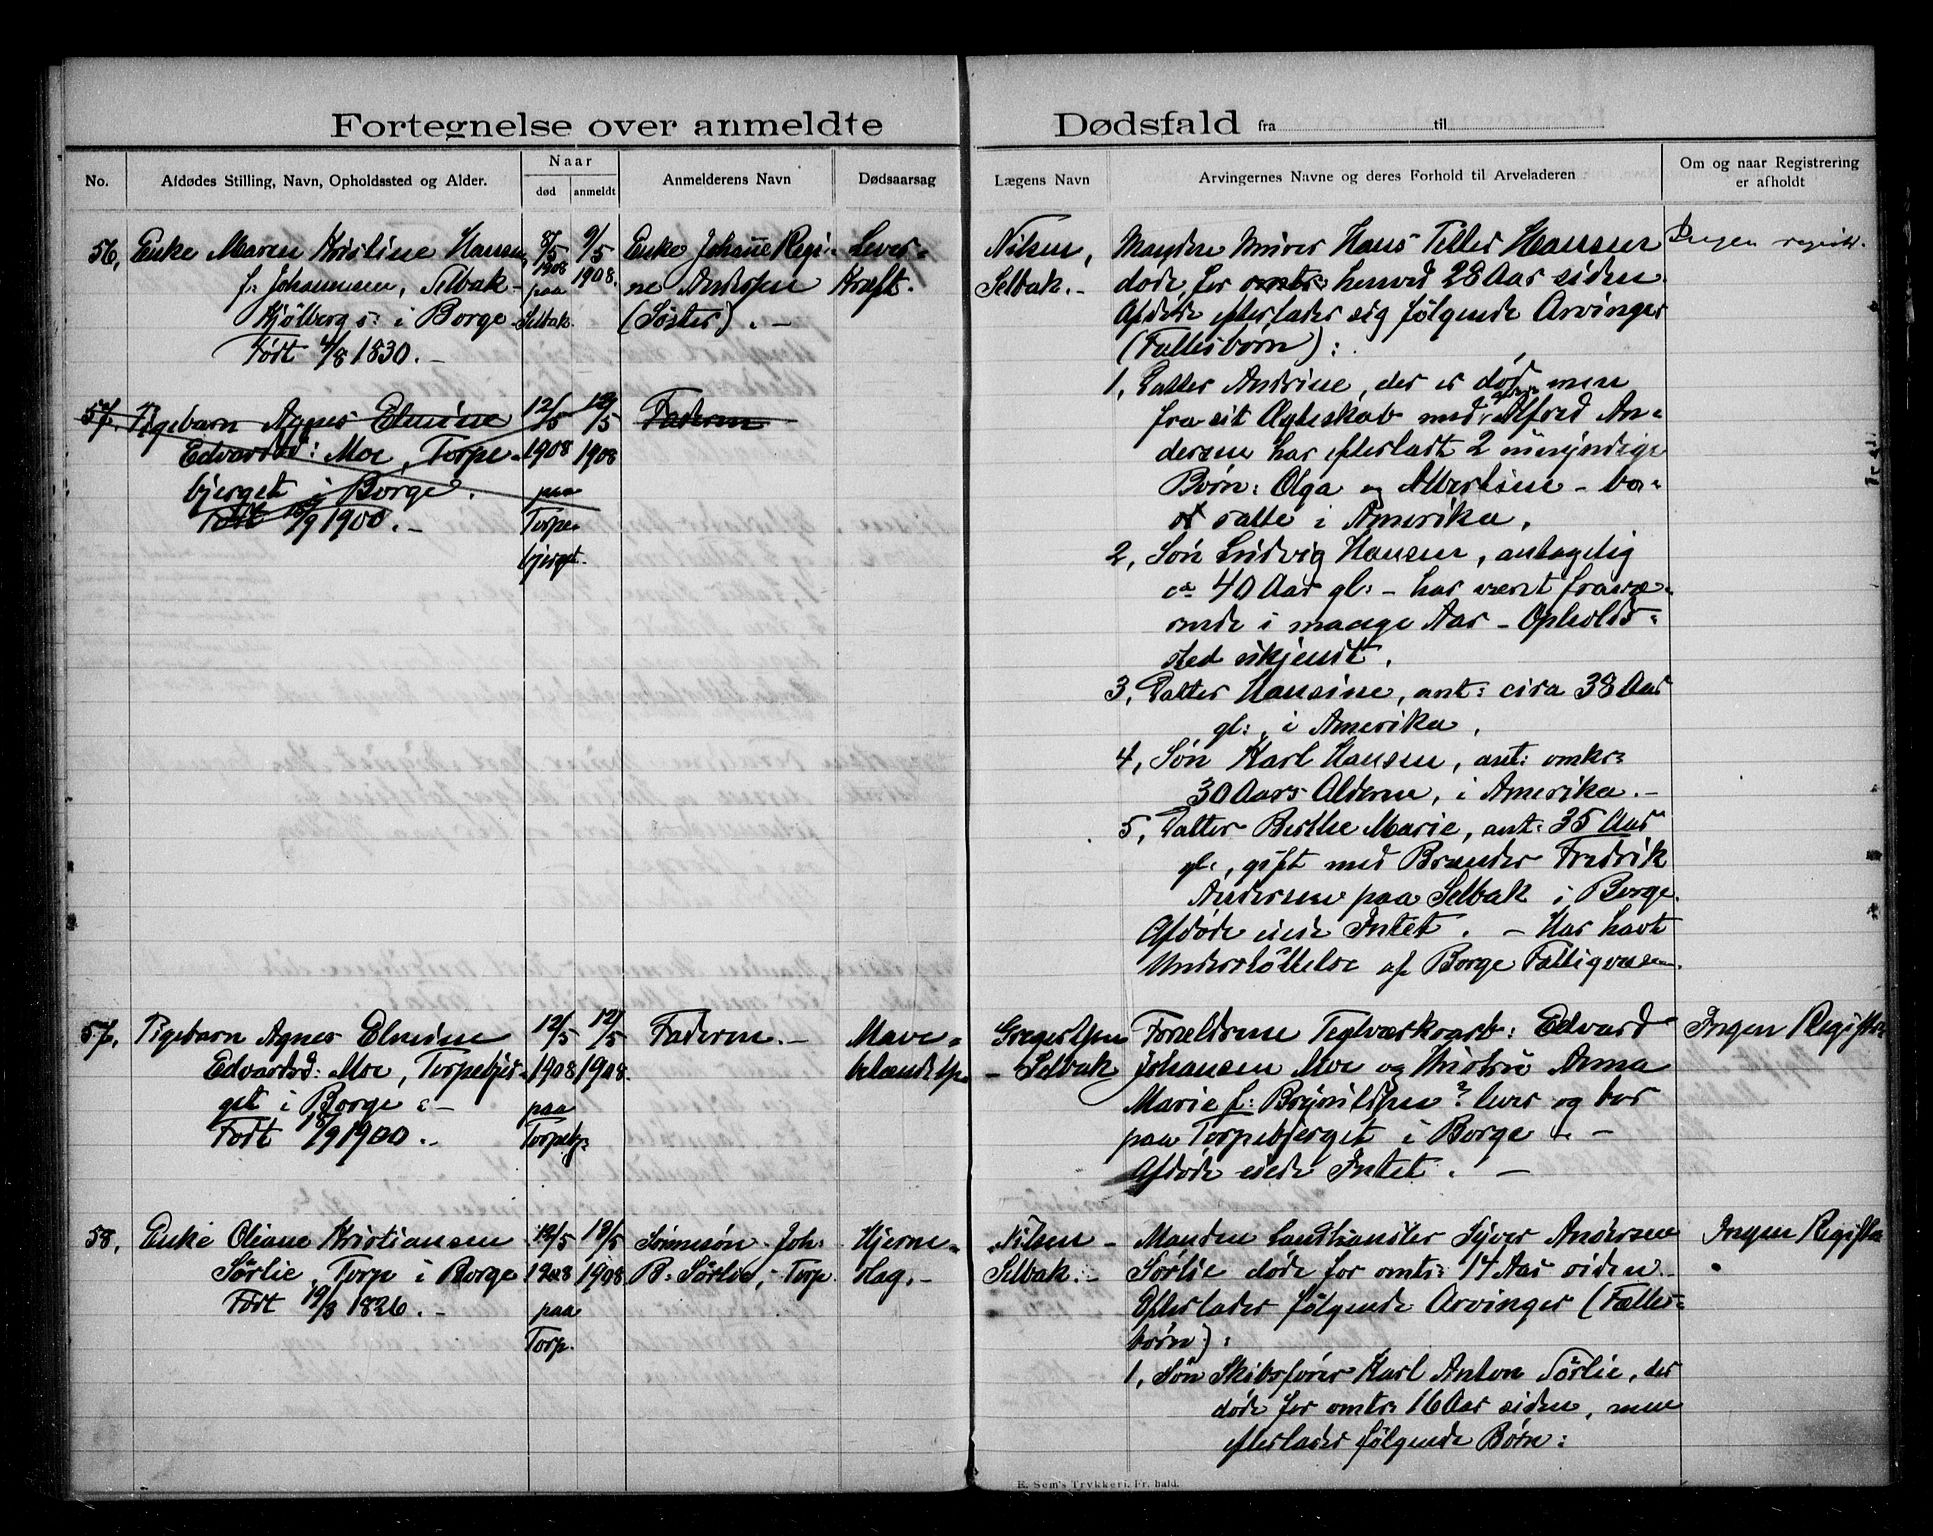 Fortegnelse over anmeldte Dødsfald fra til
No.
Afdødes Stilling, Navn, Opholdssted og Alder.
Naar
død
anmeldt
Anmelderens Navn
Dødsaarsag
Lægens Navn
Arvingernes Navne og deres Forhold til Arveladeren
Om og naar Registrering
er afholdt
56, Enke Maren Kristine Hansen
f: Johannesen, Selbak -
Kjølberg s: i Borge -
Født 4/8 1830. -
8/5
1908
paa
Selbak.
9/5
1908.
Enke Johanne Regi-
ne Andersen
(Søster). -
Lever-
Kræft.
Nilsen,
Selbak. -
Manden Murer Hans Teller Hansen
døde for omtr: henved 28 Aar siden.
Afdøde efterlader sig følgende Arvinger
(Fællesbørn):
1, Datter Andrine, der er død men
fra sit Ægteskab med Alfred An-
dersen har efterladt 2 umyndige
Børn: Olga og Albertine - bo-
satte i Amerika.
2, Søn Ludvig Hansen, antagelig
ca 40 Aar gl: - har været fravæ-
rende i mange Aar - Opholds-
sted ukjendt.
3, Datter Hansine, ant: circa 38 Aar
gl:, i Amerika.
4, Søn Karl Hansen, ant: omkr:
30 Aars Alderen, i Amerika. -
5, Datter Berthe Marie, ant: 35 Aar
gl:, gift med Brænder Fredrik
Andersen paa Selbak i Borge.
Afdøde eiede Intet. - Har havt
Understøttelse af Borge Fattigvæsen.
Ingen registr.
57. Pigebarn Agnes Elmine
Edvardsd: Moe, Torpe-
bjerget i Borge.
Født 18/9 1900. -
12/5
1908
paa
Torpe-
bjerget.
12/5
1908
Faderen
57, Pigebarn Agnes Elmine
Edvardsd: Moe, Torpebjer-
get i Borge: -
Født 18/9 1900. -
12/5
1908
paa
Torpebj:
12/5
1908.
Faderen. -
Mave-
betændelse
Gregertsen
- Selbak
Forældrene Teglværksarb: Edvard
Johansen Moe og Hustru Anna
Marie f: Brynildsen? lever og bor
paa Torpebjerget i Borge - -
Afdøde eiede Intet. -
Ingen Registr.
58, Enke Oliane Kristiansen
Sørlie, Torp i Borge
Født 19/3 1826. -
13/5
1908
paa
Torp.
13/5
1908
Sønnesøn Joh:
B: Sørlie, Torp.
Hjerne-
slag. -
Nilsen -
Selbak. -
Manden Landhandler Syver Andersen
Sørlie døde for omtr: 14 Aar siden.
Efterlader følgende Arvinger (Fælles-
børn):
1, Søn Skibsfører Karl Anton Sørlie, der
døde for omtr: 16 Aar siden, men
efterlader følgende Børn:
Ingen Registr.
E. Sem's Trykkeri, Fr.hald.